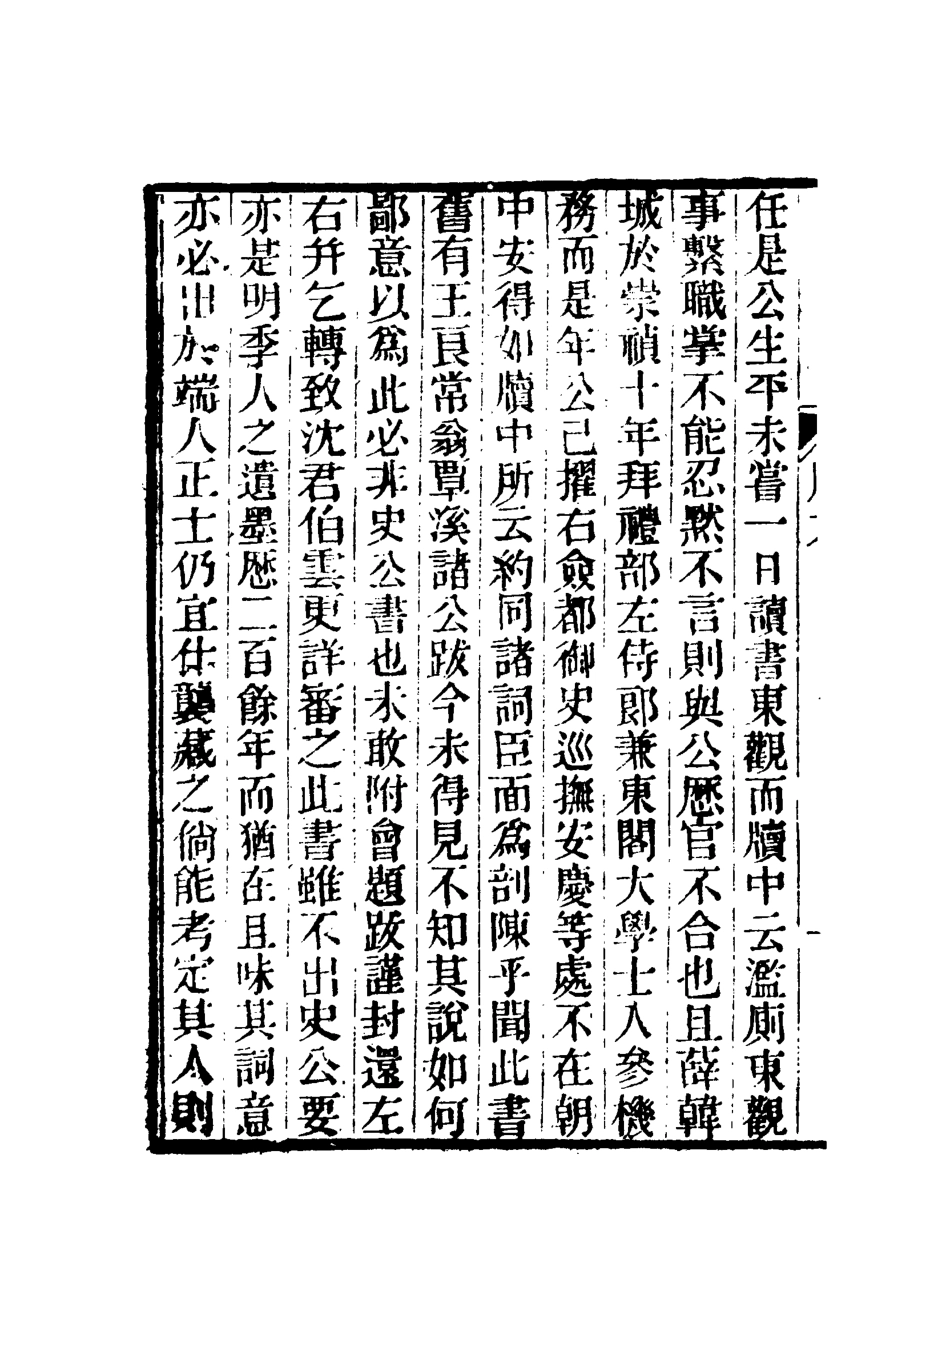 任是公生平未嘗一日讀書東觀而牘中云濫廁東觀
事繫職掌不能忍默不言則與公歷官不合也且薛韓
城於崇禎十年拜禮部左侍郎兼東閣大學士入參機
務而是年公已擢右僉都御史巡撫安慶等處不在朝
中安得如牘中所云約同諸詞臣面爲剖陳乎聞此書
舊有王良常翁覃溪諸公跋今未得見不知其說如何
鄙意以爲此必非史公書也未敢附會題跋謹封還左
右幷乞轉致沈君伯雲更詳審之此書雖不出史公要
亦是明季人之遺墨歷二百餘年而猶在且味其詞意
亦必出於端人正士仍宜什襲藏之倘能考定其人則